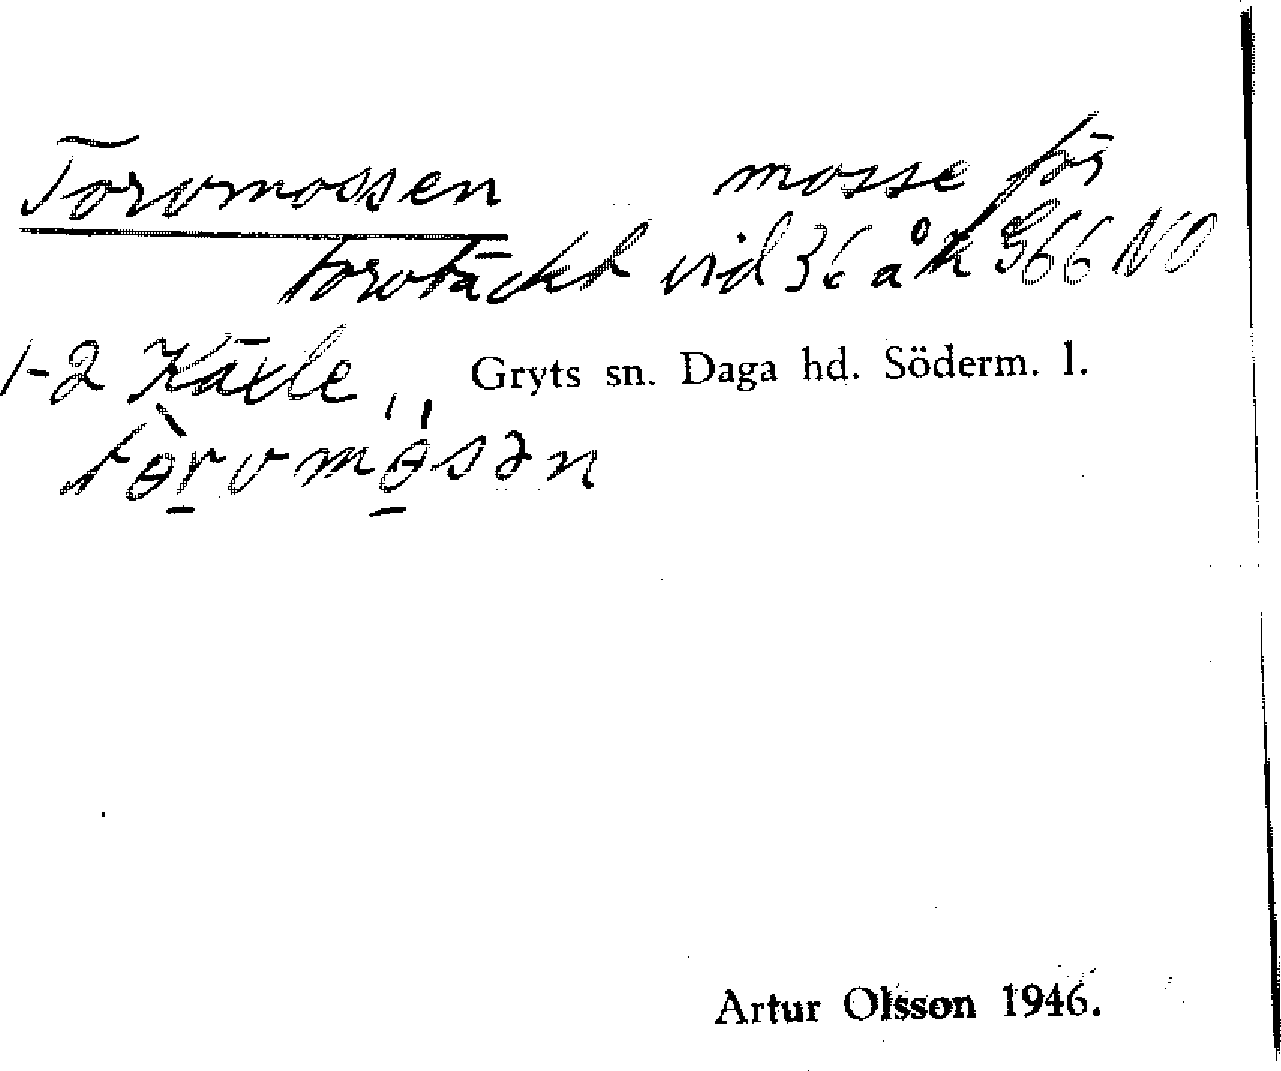 Torvmossen mosse för
torvtäckt vid 36 åk 566 NO
1-2 Käxle, Gryts sn. Daga hd. Söderm. l.
tòrvmɵ́sən
Artur Olsson 1946.